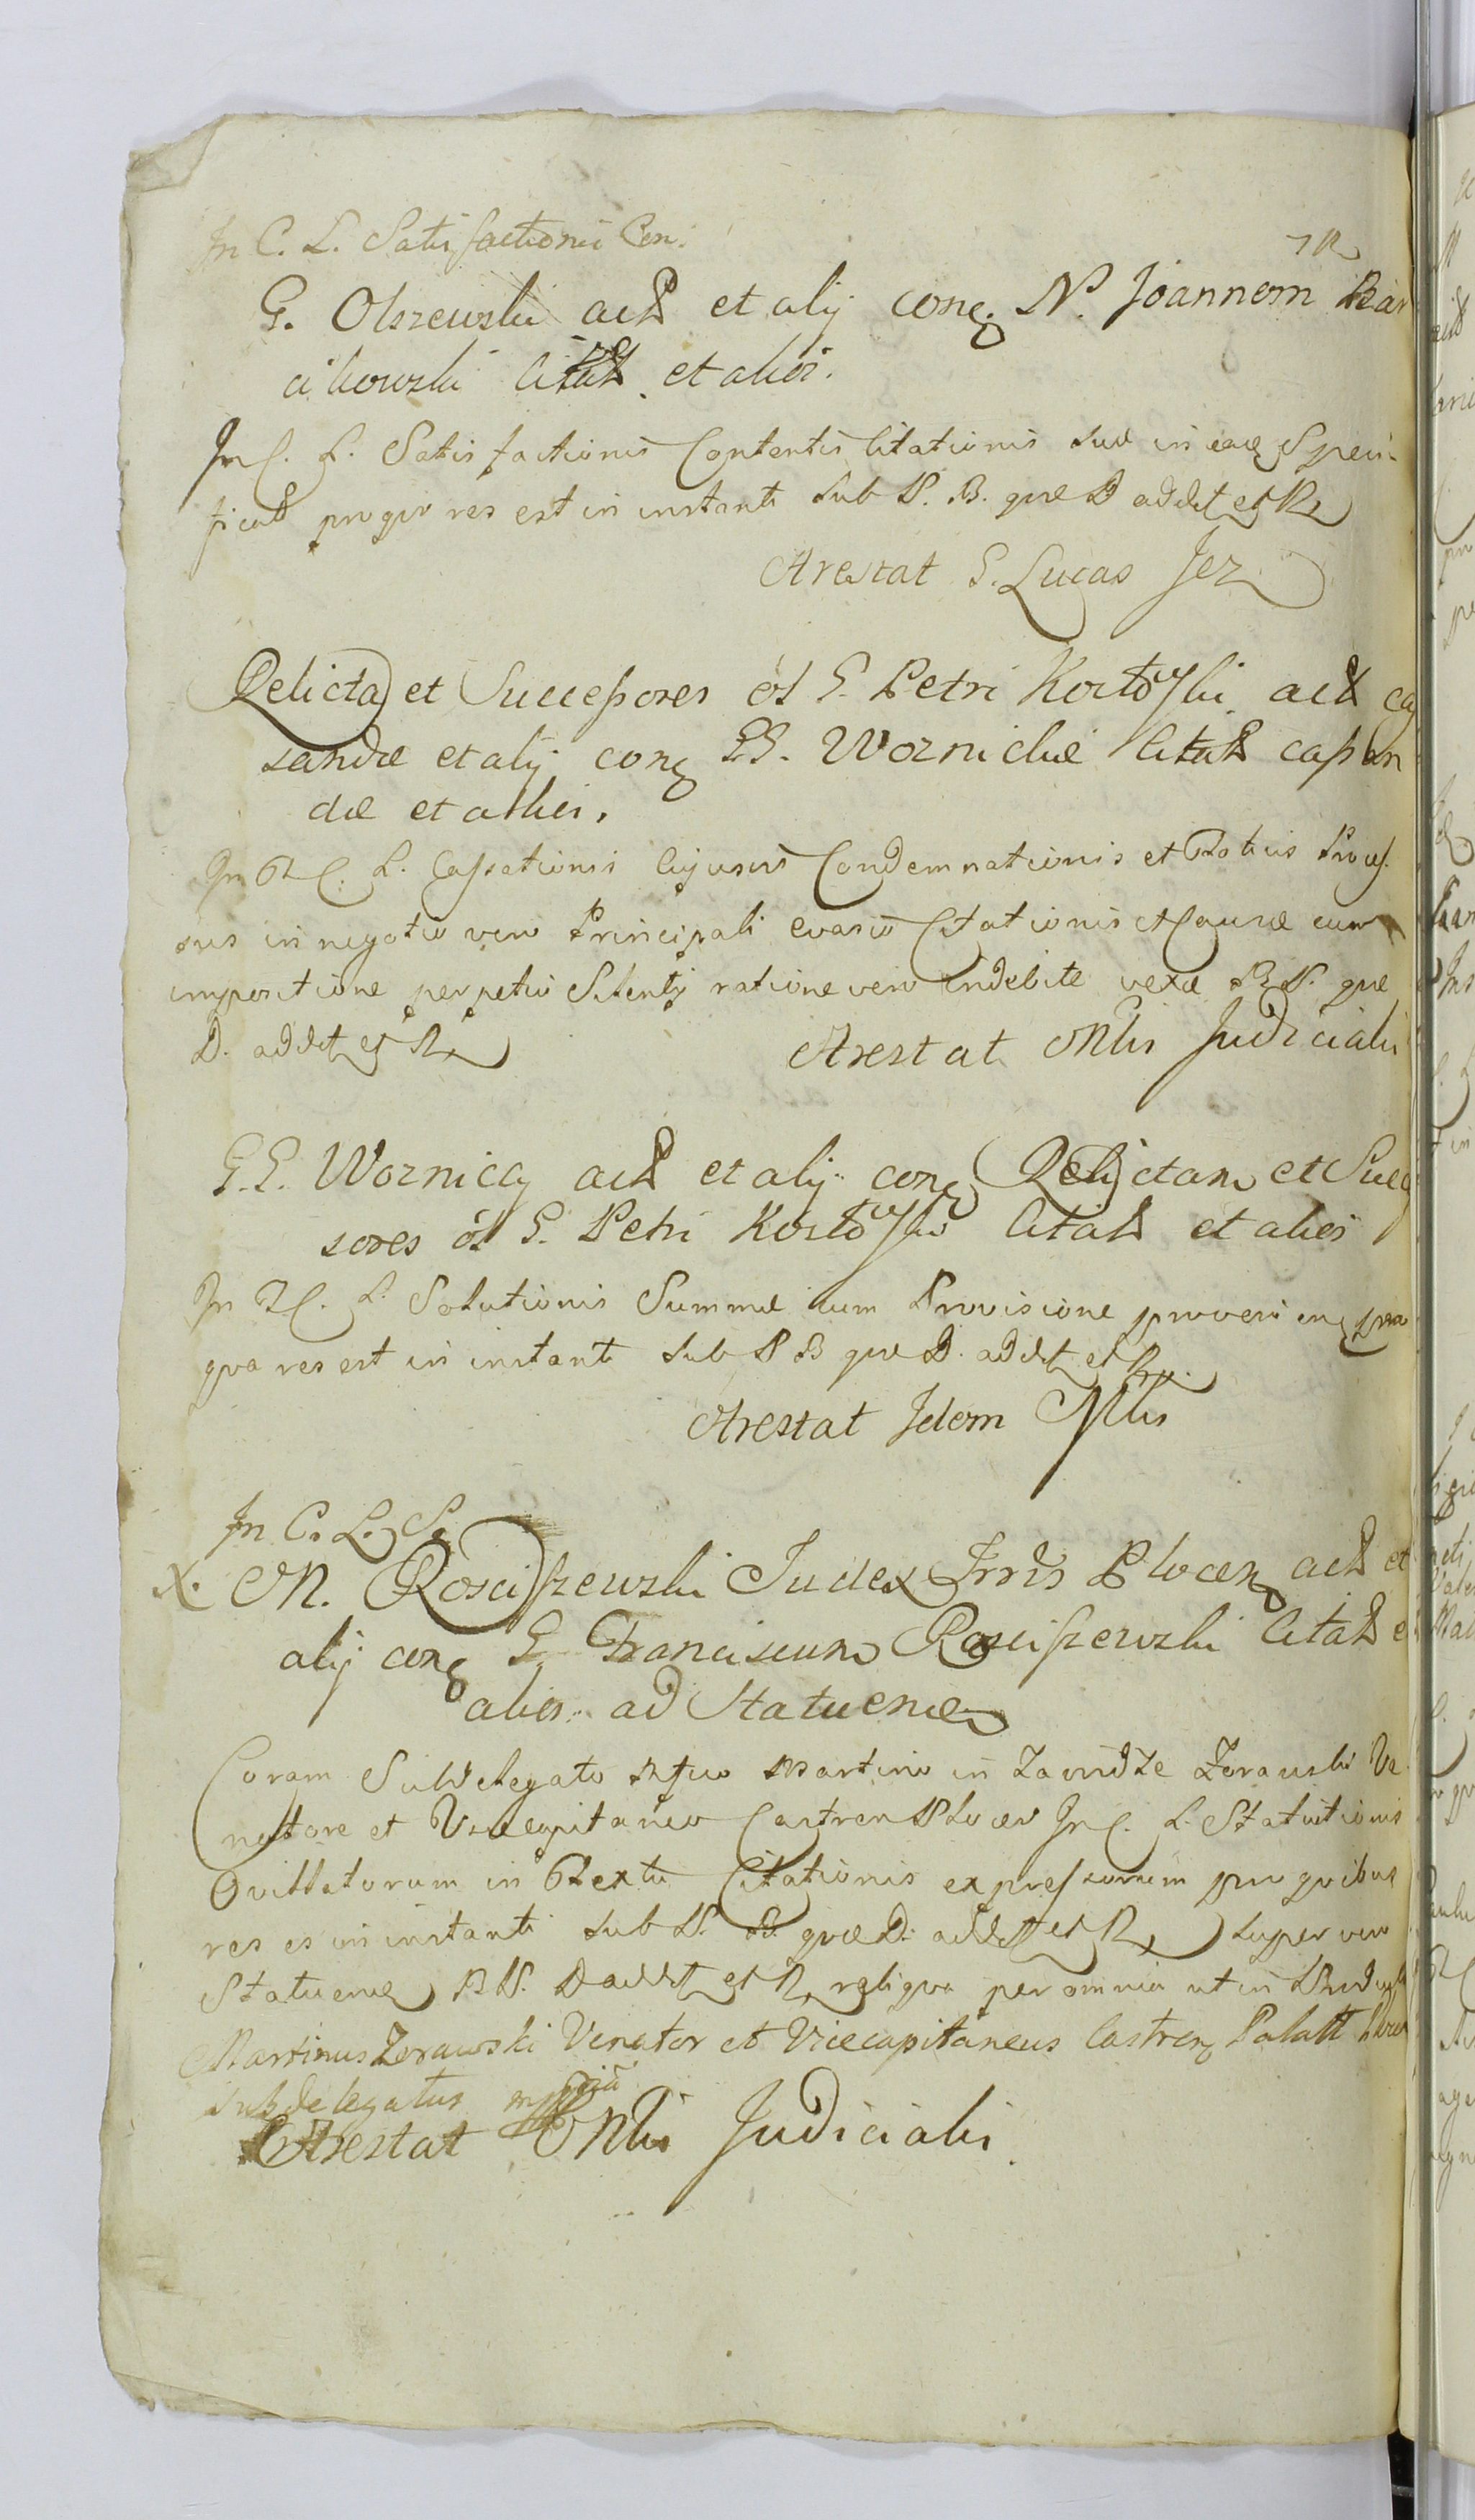 In C. L. Satisfactionis Con:
G. Olszewski act et alij cong. N. Joannem Bar
cikowski Citat et alios.
In C. L. Satisfactionis Contentis Citationis suæ in eaq Speci-
ficat pro qvo res est in instanti sub P. B. qvæ D addet et R
Arestat G. Lucas Jez
Relicta et Successores ol G. Petri Kosto act cas
sandæ et alij cong GG. Woznickie Citat cassan
dæ et alios.
In C. L. Cassationis Cujusvis Condemnationis et Totius Process
sus in negotio vero Principali evasio Citationis et Causæ cum
impositione perpetui Silentij ratione vero indebite vexæ B P. qvæ
D. addet et R
Arestat Mtis Judicialis
G.G. Woznicey act et alij cong Relictam et Succes
sores ol G. Petri Citat et alios
In C. L. Solutionis Summæ cum Provisione proven pro
qva res est in instanti sub P B qvæ D. addet et R
Arestat Idem Mtis
In C. L. S.
X. M. Rosciszewski Judex Trris Plocen act et
alij cong G. Franciscum Rosciszewski Citat et
alios ad Statuen
Coram Subdelegato Martino in Zawidze Zerawski Ve
natore et Vicecapitaneo Castren Plocen In C. L. Statuitionis
Oviltatorum in Textu Citationis expressorum pro qvibus
res es in instanti sub P. B. qvæ D. addet et R super vero
Statuen B P. D addet et R reliqva per omnia ut in
Martinus Zerawski Venator et Vicecapitaneus Castren Palatt
Subdelegatus mppria
Arestat Mtis Judicialis